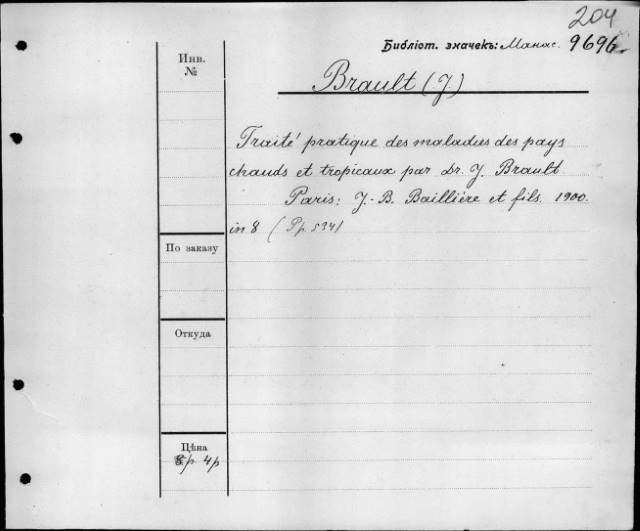 204
Библіот. значекъ: Манас. 9696
Инв.
№
Brault (J.)
Traité pratique des maladies des pays
chauds et tropicaux par Dr. J. Brault
Paris: J.-B. Baillière et fils. 1900.
in 8 (Pp. 534)
По заказу
Откуда
Цѣна
4р